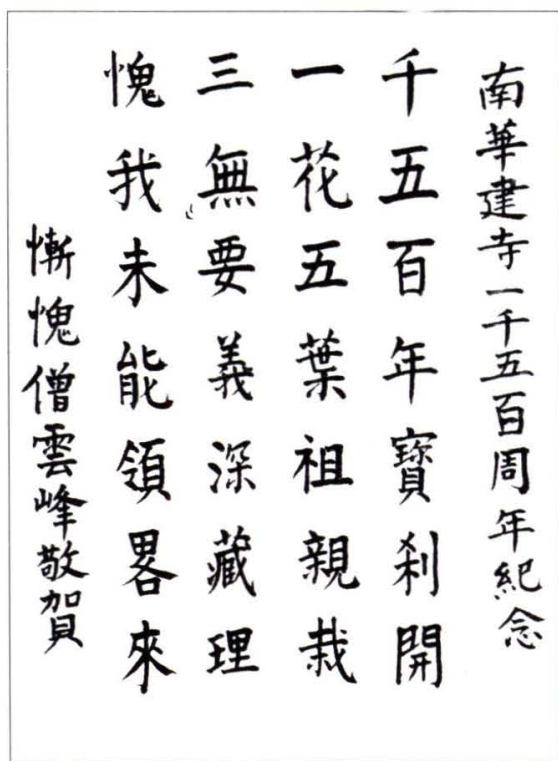 南華建寺一千五百周年紀念
千五百年寶刹開
一花五葉祖親栽
三無要義深藏理
愧我未能領畧來
慚愧僧雲峰敬賀